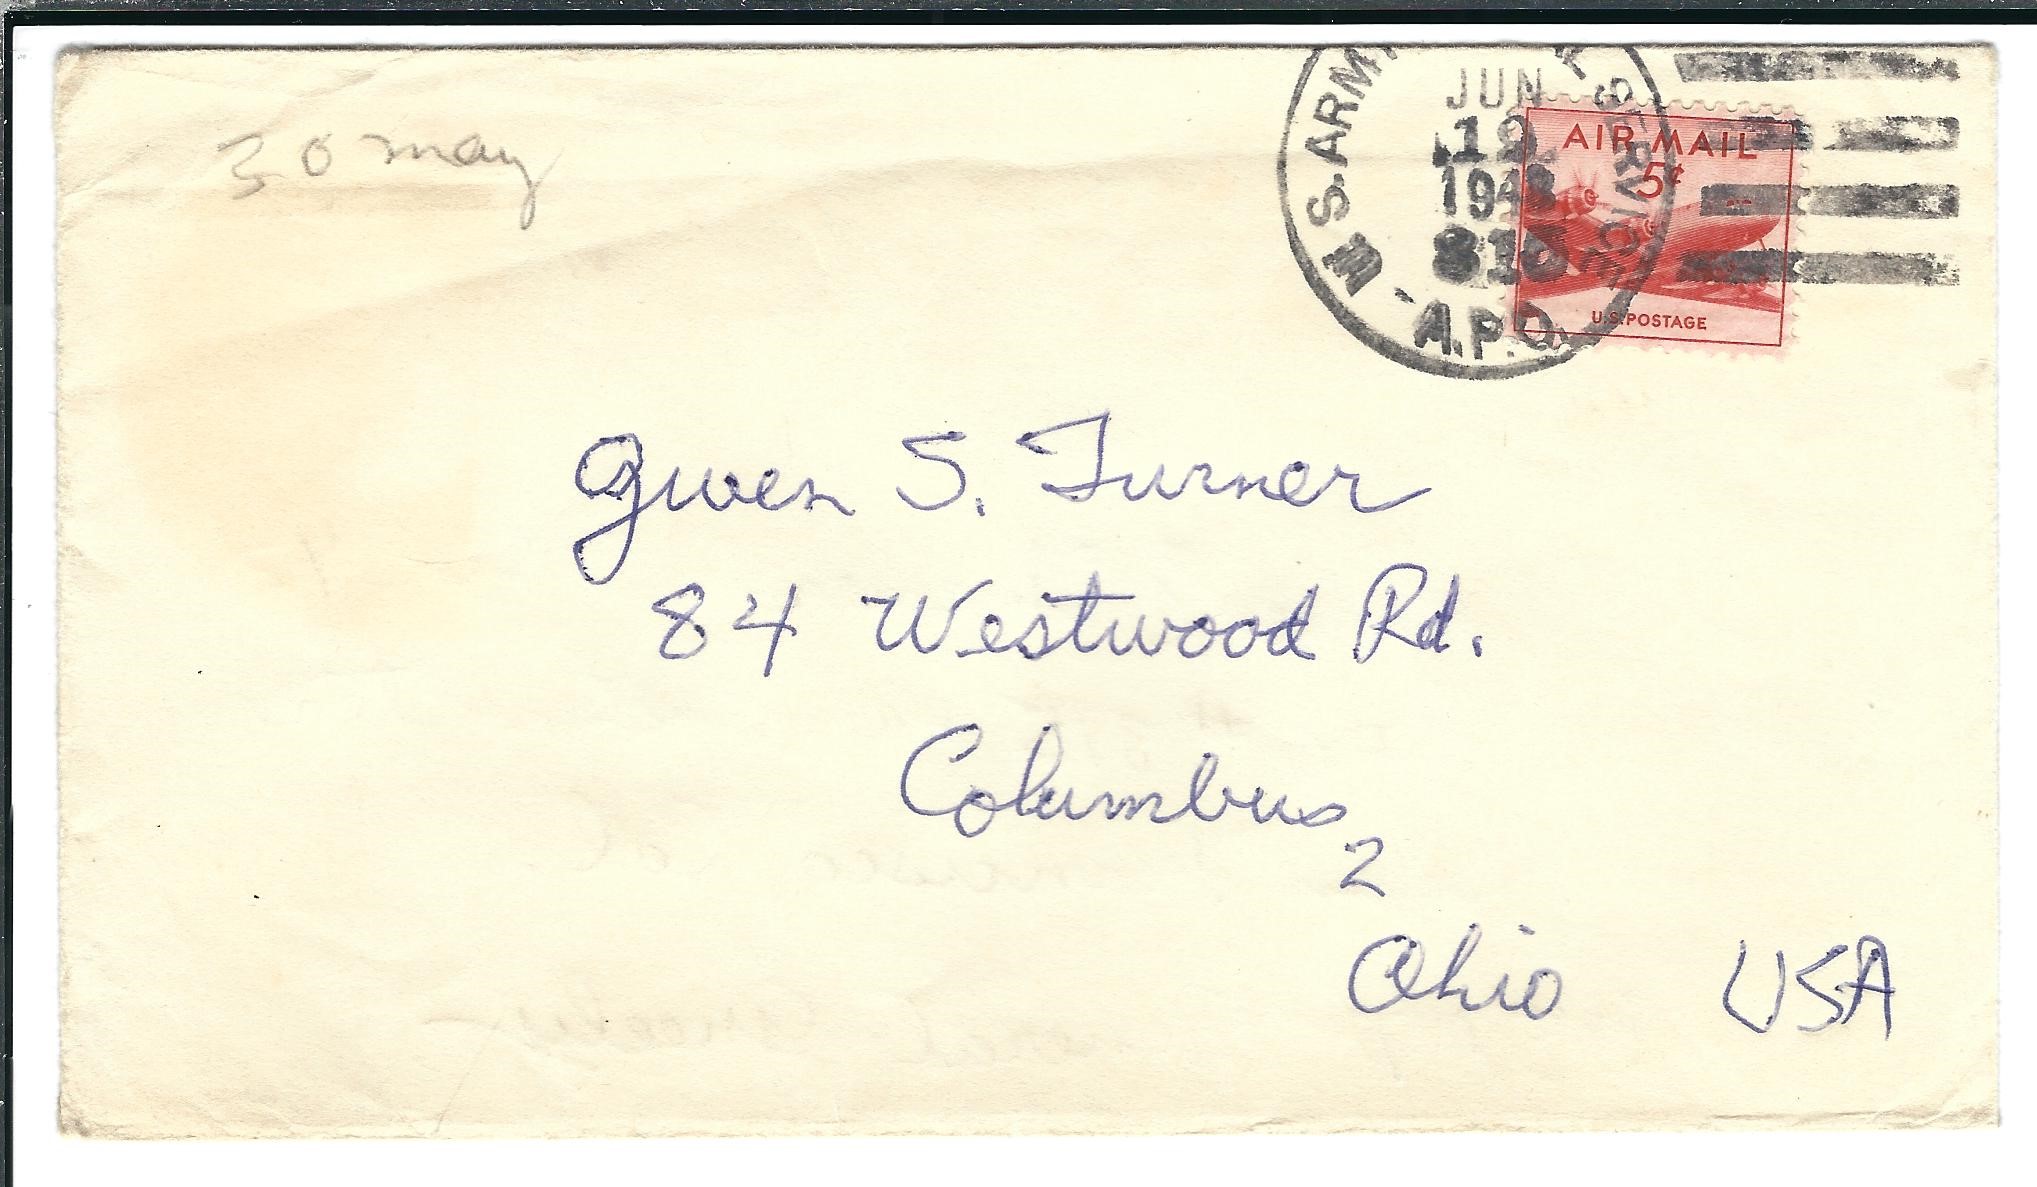 30 may
U.S. ARMY SERVICE
JUN
1948
A.P.O.
AIR MAIL
5¢
U.S. POSTAGE
Gwen S. Turner
84 Westwood Rd.
Columbus,
2
Ohio USA